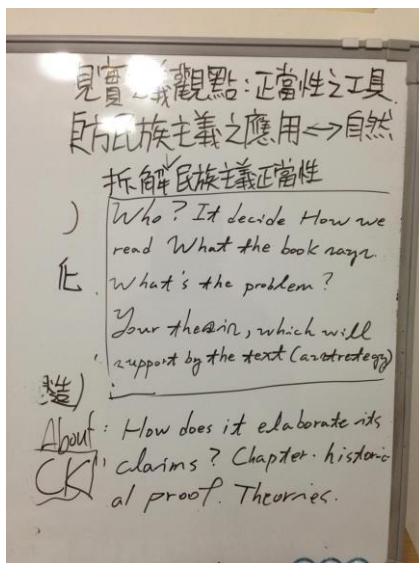 見實主義觀點：正當性之工具
官方民族主義之應用<=>自然
拆解民族主義正當性
) Who? It decide How we
read What the book says.
化 What's the problem?
Your thesis, which will
support by the text (a strategy)
造)
About: How does it elaborate its
CK claims? Chapter. historic-
al proof. Theories.